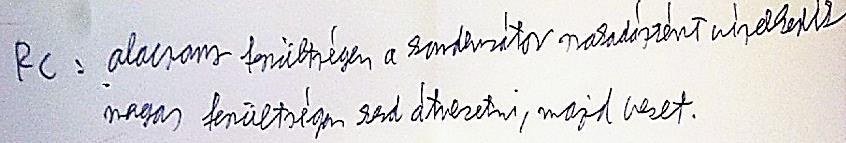 RC: alacsony feszültségen a kondenzátor szakadásként viselkedik
magas feszültségen kezd átvezetni, majd vezet.